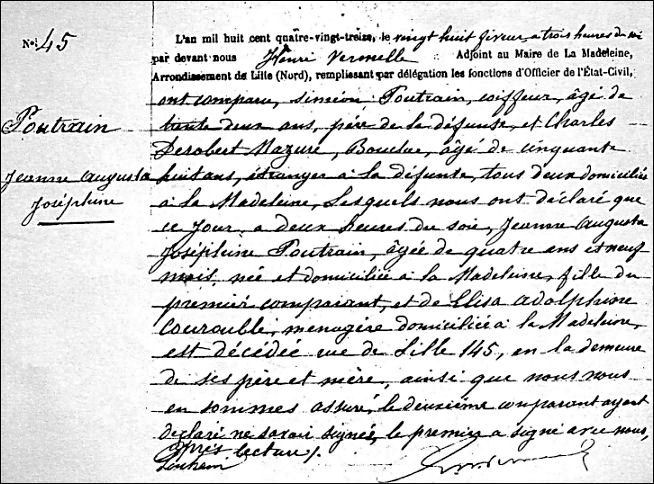 N°: 45
L'an mil huit cent quatre-vingt-treize, le vingt huit février, à trois heures du soir
par devant nous Henri Vermelle Adjoint au Maire de La Madeleine,
Arrondissement de Lille (Nord), remplissant par délégation les fonctions d'Officier de l'État-Civil,
ont comparu, Siméon Poutrain, coiffeur, âgé de
Poutrain
trente deux ans, père de la défunte, et Charles
Derobert Mazure, Boucher, âgé de cinquante
Jeanne Augusta
huit ans, étranger à la défunte, tous deux domiciliés
Joséphine
à la Madeleine, Lesquels nous ont déclaré que
ce jour, à deux heures du soir, Jeanne Augusta
Joséphine Poutrain, âgée de quatre ans et neuf
mois, née et domiciliée à la Madeleine, fille du
premier comparant, et de Elisa Adolphine
Courouble, menagère domiciliée à la Madeleine,
est décédée rue de Lille 145, en la demeure
de ses père et mère, ainsi que nous nous
en sommes assuré, le deuxième comparant ayant
déclaré ne savoir signer, le premier a signé avec nous,
après lecture /.